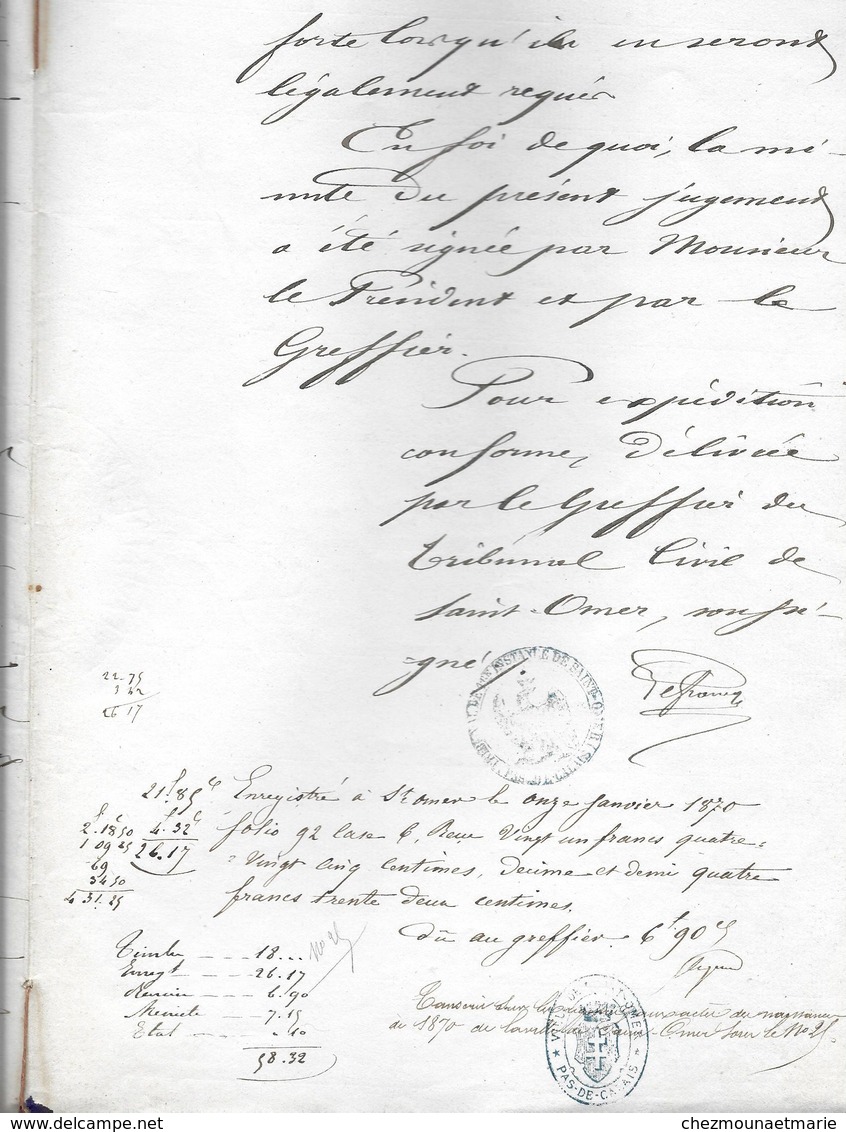 forte lorsqu'ils en seront
légalement requis
En foi de quoi, la mi-
nute du présent jugement
a été signée par Monsieur
le Président et par le
Greffier.
Pour expédition
conforme, délivrée
par le Greffier du
tribunal Civil de
Saint-Omer, sousśi-
gné
22-75
3 42
26 17
21f 85c Enregistré à St omer le onze Janvier 1870
4. 32c folio 92 Case 6, Reçu Vingt un francs quatre=
26.17 =Vingt cinq centimes, decime et demi quatre
francs trente deux centimes.
2.1850
1 0925
69
3450
4 31.25
dû au greffier 6f 90c
No 25
Timbre - - - 18...
Enregt - - - 26.17
- - - 6.90
- - 7.15
Etat - - .10
58.32
Transcrit sur les registres aux actes de naissance
de 1870 de la ville de Saint-Omer sous le No 25
VILLE DE SAINT-OMER
★ PAS-DE-CALAIS ★
chezmounaetmarie